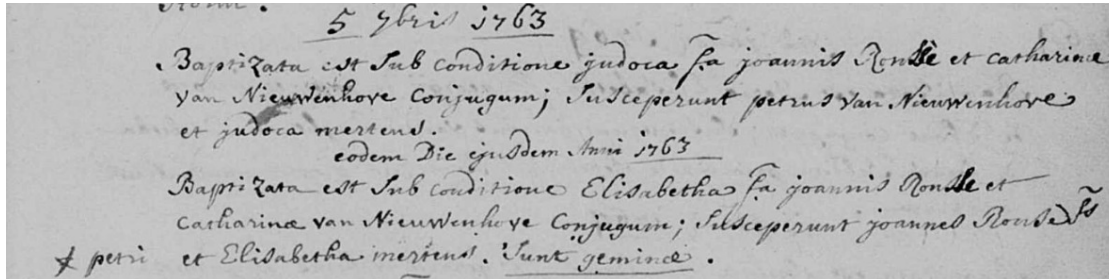 5 7bris 1763
Baptizata est sub conditione judoca fa joannis Ronsse et catharinæ
van Nieuwenhove Conjugum; susceperunt petrus van Nieuwenhove
et judoca mertens.
eodem Die ejusdem Anni 1763
Baptizata est sub conditione Elisabetha fa joannis Ronsse et
Catharinæ van Nieuwenhove Conjugum; susceperunt joannes Ronse fs
petri et Elisabetha mertens. sunt geminæ.